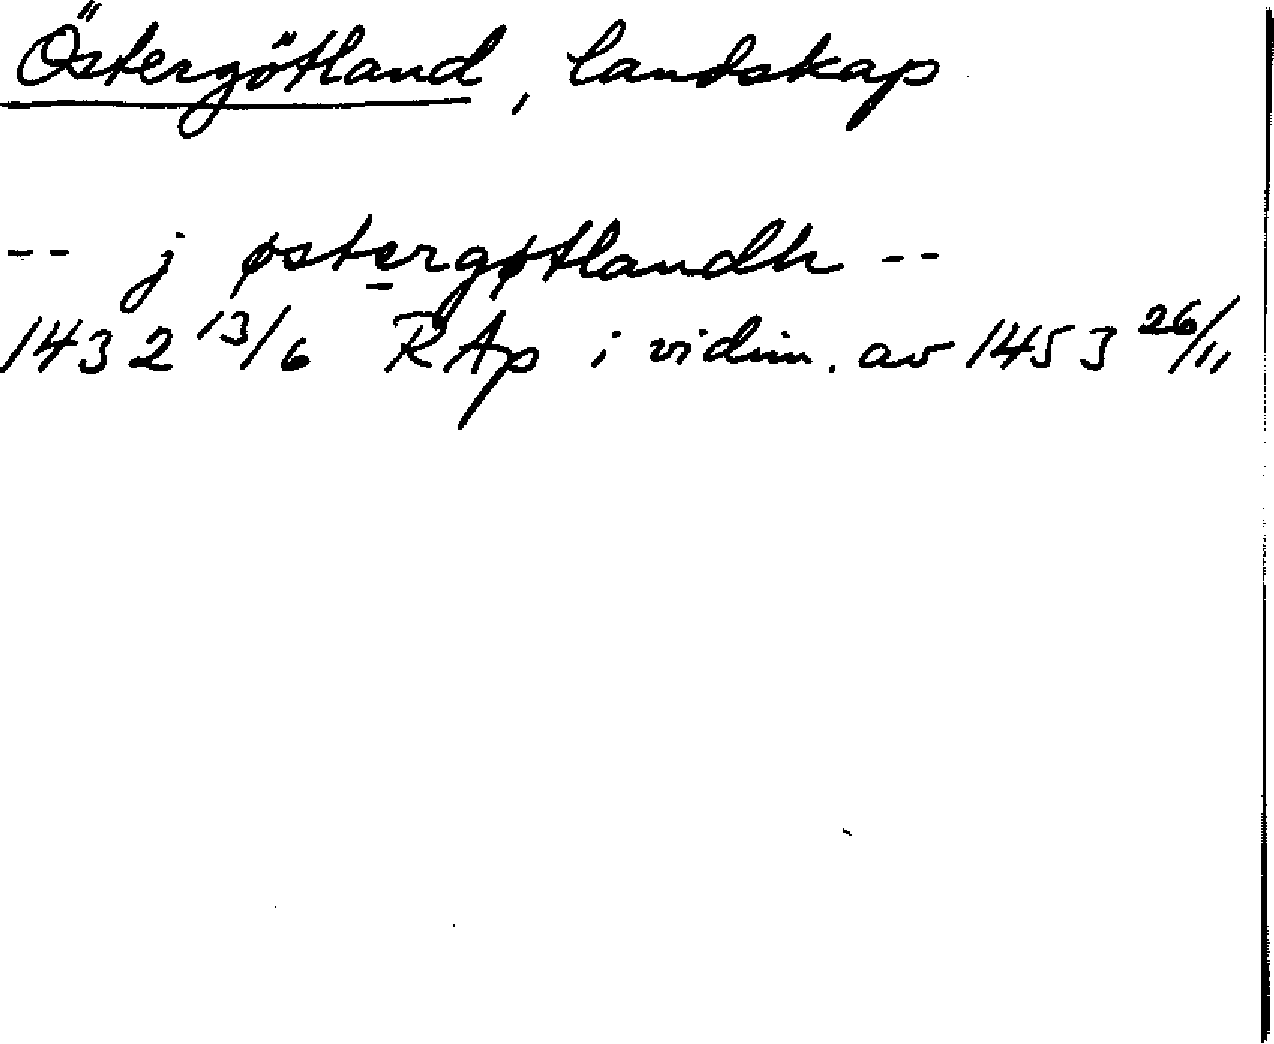 Östergötland, landskap
-- j østergøtlandh --
1432 13/6 RAp i vidim. av 1453 26/11